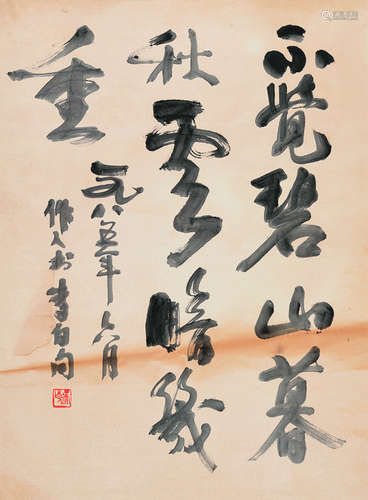 不觉碧山暮
秋云暗几
重
一九八五年六月
作人书李白句